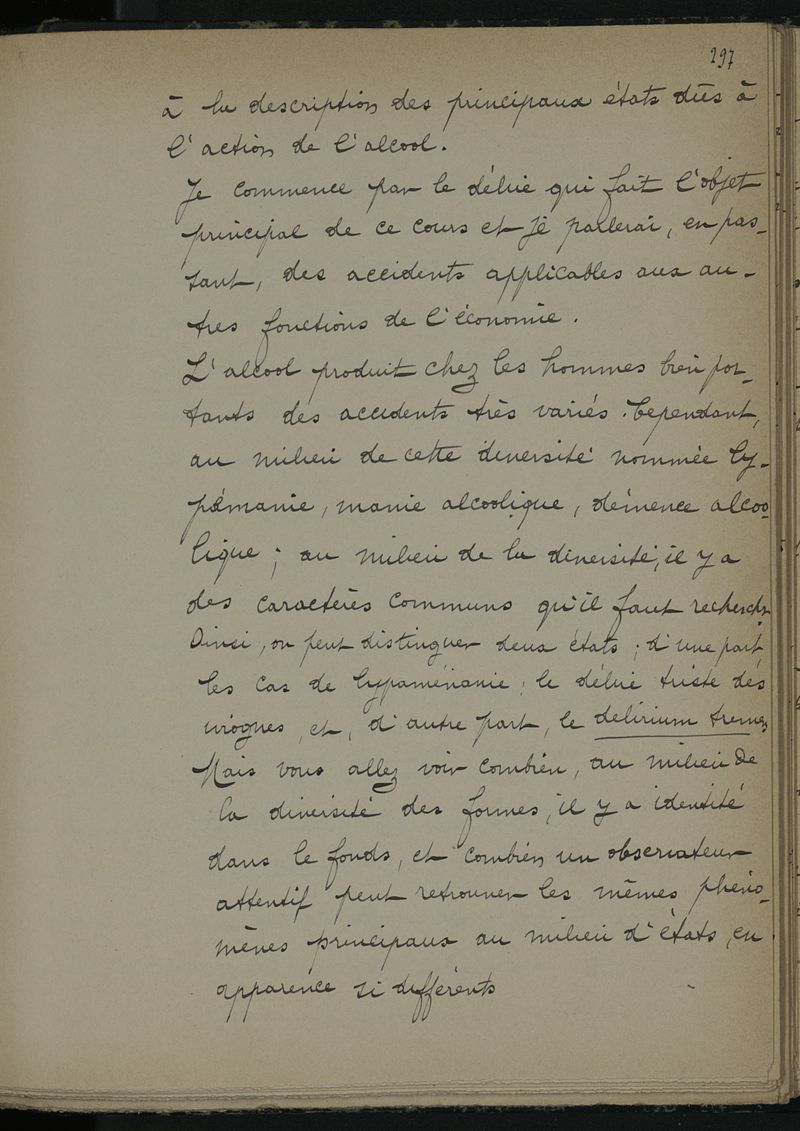 297
à la description des principaux états dûs à
l'action de l'alcool.
Je commence par le délire qui fait l'objet
principal de ce cours et je parlerai, en pas-
sant, des accidents applicables aux au-
tres fonctions de l'économie.
L'alcool produit chez les hommes bien por-
tants des accidents très variés. Cependant,
au milieu de cette diversité nommée ly-
pémanie, manie alcoolique, démence alcoo-
lique ; au milieu de la diversité, il y a
des caractères communs qu'il faut rechercher.
Ainsi, on peut distinguer deux états ; d'une part,
les cas de lypaménanie, le délire triste des
ivrognes, et, d'autre part, le delirium tremens
Mais vous allez voir combien, au milieu de
la diversité des formes, il y a identité
dans le fonds, et combien un observateur
attentif peut retrouver les mêmes phéno-
mènes principaux au milieu d'états, en
apparence si différents